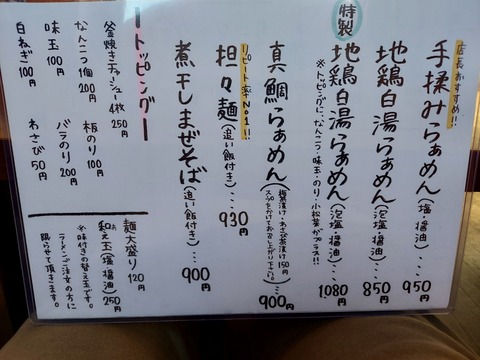 店長おすすめ!!
手揉みらぁめん(塩・醤油)・・・950円
地鶏白湯らぁめん(泡塩・醤油)・・・850円
特製
地鶏白湯らぁめん(泡塩・醤油)・・・1,080円
※トッピングに、なんこつ・味玉・のり・小松菜がプラス!!
真鯛らぁめん
・わさび茶漬け150円
スープをかけてお召し上がり下さい。
・・・900円
リピート率No1!!
担々麺(追い飯付き)・・・930円
煮干しまぜそば(追い飯付き)・・・900円
トッピング
釜焼きチャーシュー4枚250円
なんこつ1個200円
板のり100円
味玉100円
バラのり200円
白ねぎ100円
わさび50円
麺大盛り120円
和え玉(塩・醤油)250円
※味付きの替え玉です。
ラーメンご注文の方に
限らせて頂きます。